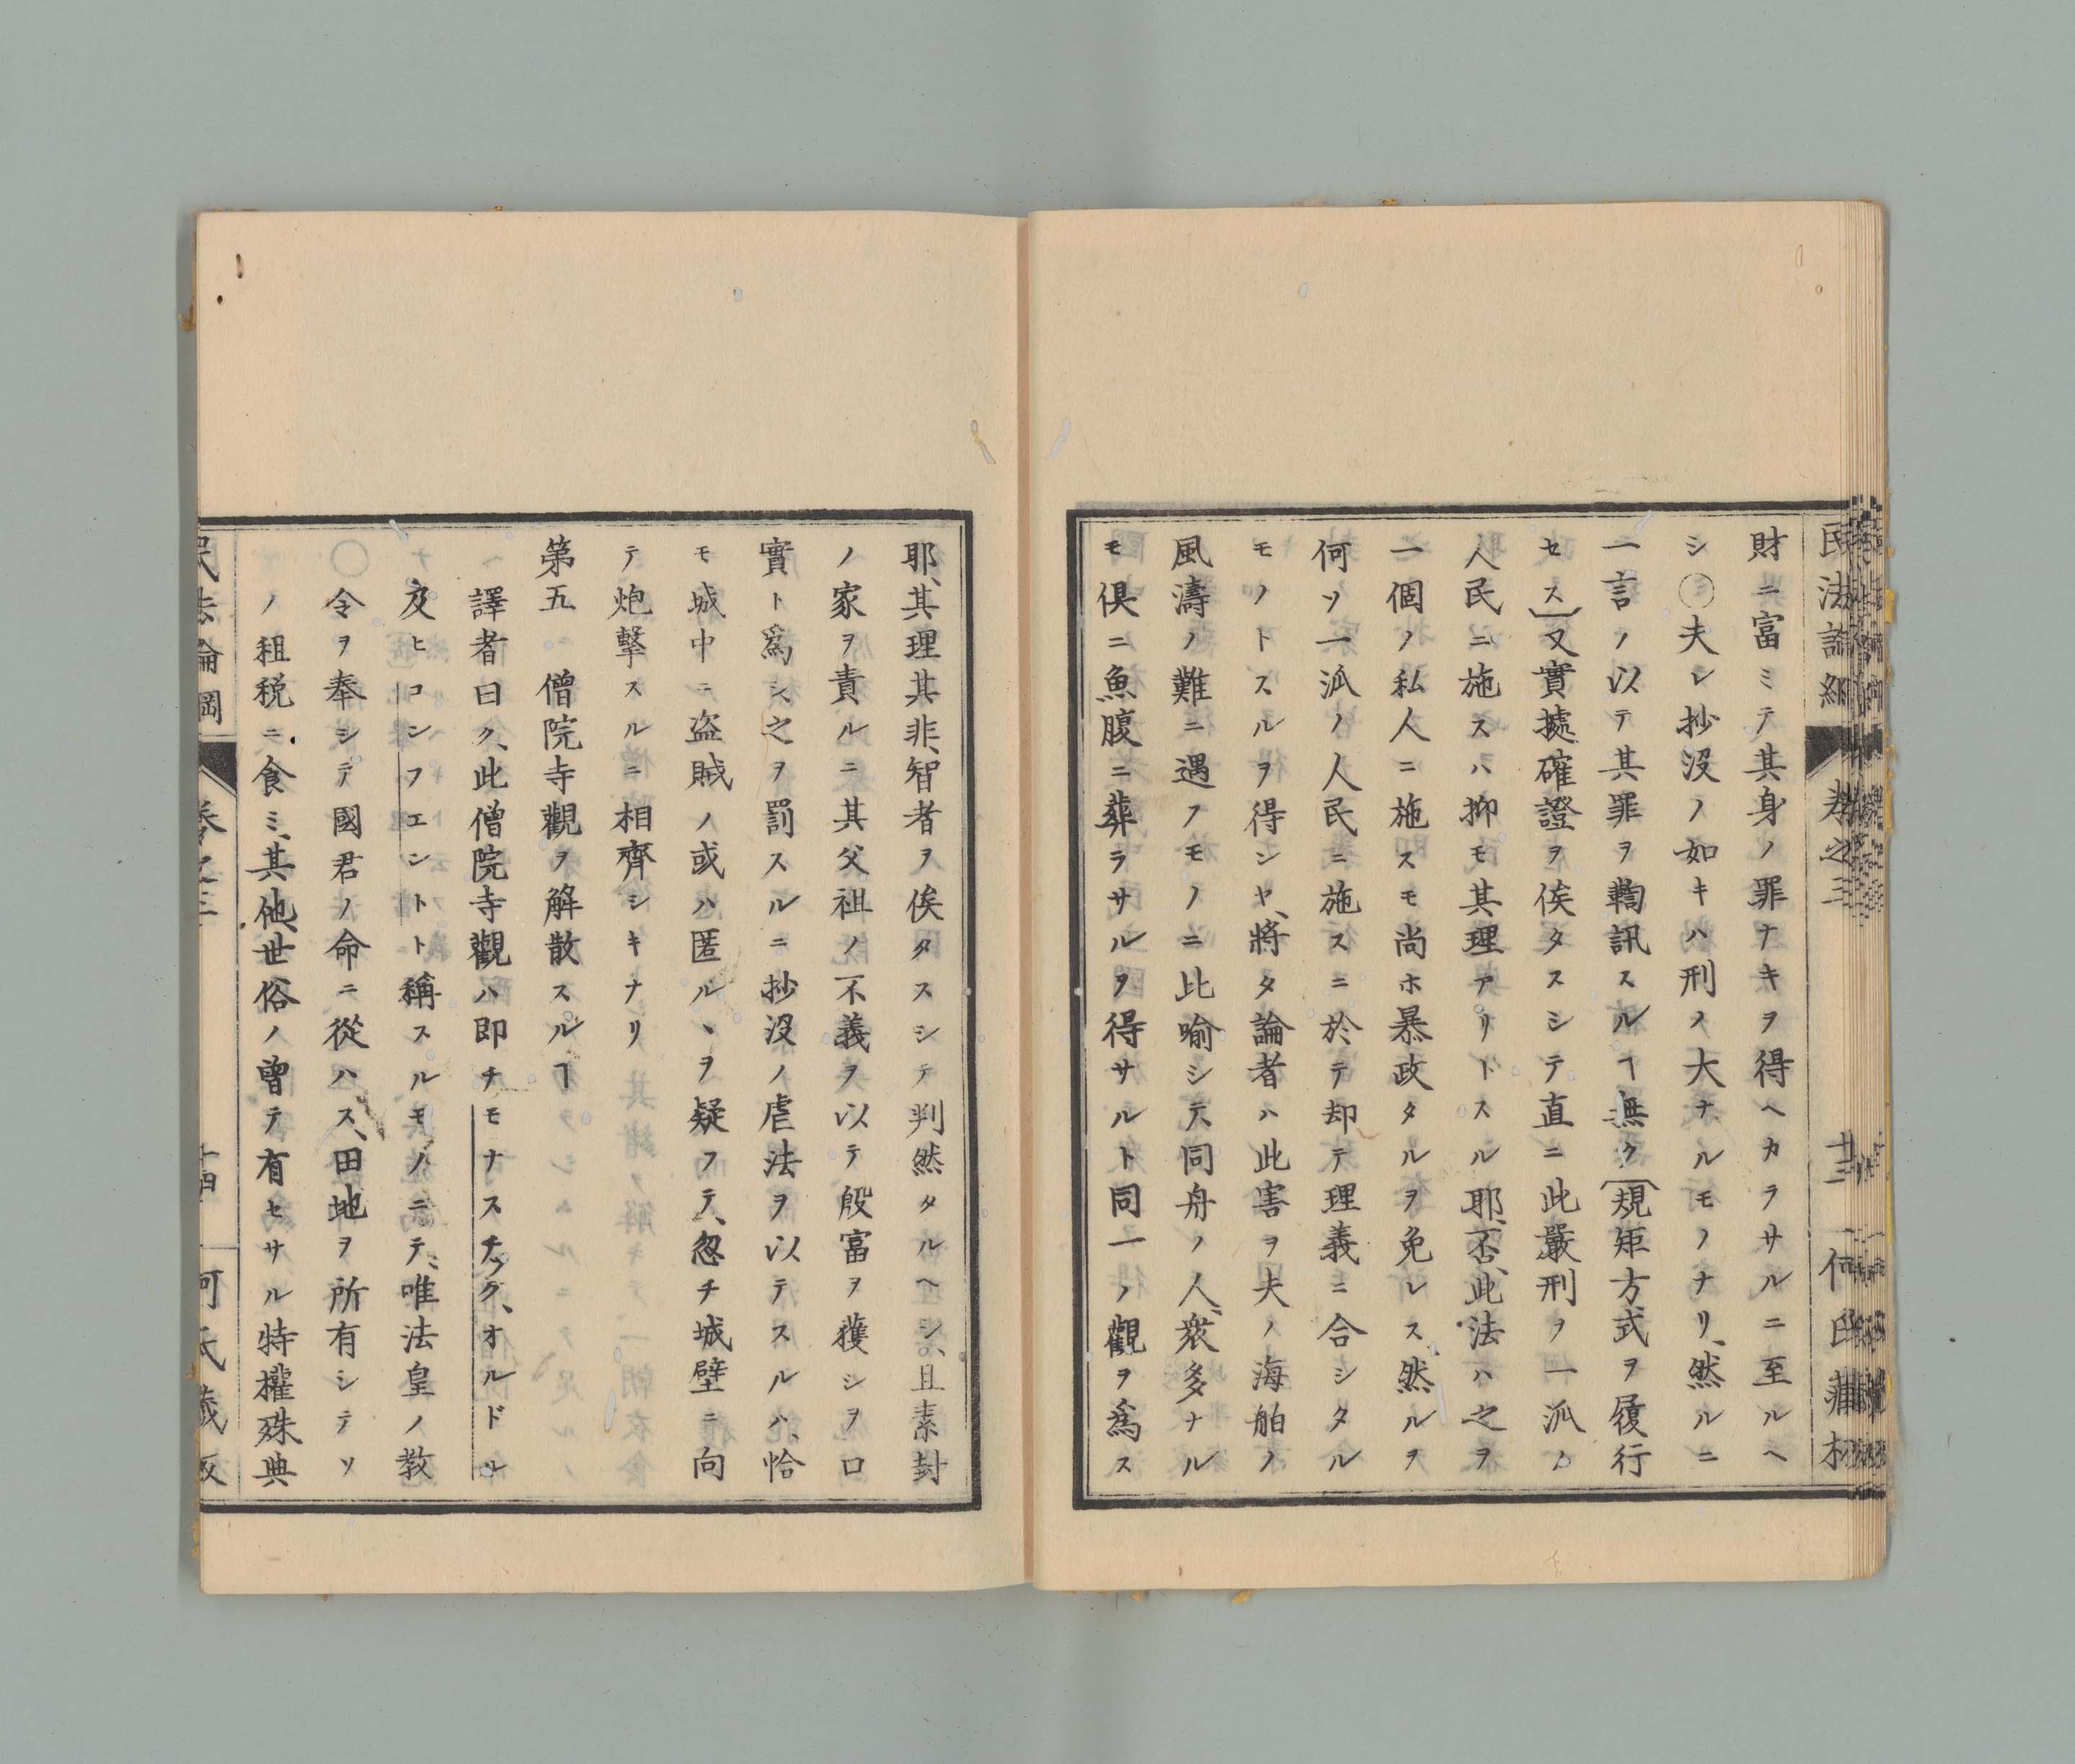 民法論綱
卷之三
十三
何氏藏板
財ニ富ミテ其身ノ罪ナキヲ得ヘカラサルニ至ルヘ
シ〇夫レ抄没ノ如キハ刑ノ大ナルモノナリ、然ルニ
一言ノ以テ其罪ヲ鞫訊スルヿ無ク(規矩方式ヲ履行
セス)又實據確證ヲ俟タスシテ直ニ此嚴刑ヲ一派ノ
人民ニ施スハ抑モ其理アリトスル耶、否、此法ハ之ヲ
一個ノ私人ニ施スモ尚ホ暴政タルヲ免レス然ルヲ
何ソ一派ノ人民ニ施スニ於テ却テ理義ニ合シタル
モノトスルヲ得シヤ、將タ論者ハ此害ヲ夫ノ海舶ノ
風濤ノ難ニ遇フモノニ此喻シテ、同舟ノ人、衆多ナル
モ俱ニ魚腹ニ葬ラサルヲ得サルト同一ノ觀ヲ爲ス
耶、其理其非、智者ヲ俟タスシテ判然タルヘシ、且素封
ノ家ヲ責ルニ其父祖ノ不義ヲ以テ殷富ヲ獲シヲロ
實ト爲シ、之ヲ罰スルニ抄没ノ虐法ヲ以テスルハ、恰
モ城中ニ盗賊ノ或ハ匿ルヽヲ疑フテ、忽チ城壁ニ向
テ炮撃スルニ相齊シキナリ
第五　僧院寺觀ヲ解散スルヿ
譯者曰ク、此僧院寺觀ハ即チモナスチック、オルドル
及ヒコンフエントト稱スルモノニテ、唯法皇ノ教
令ヲ奉シテ國君ノ命ニ從ハス、田地ヲ所有シテソ
ノ租税ニ食ミ、其他世俗ノ曾テ有セサル特權殊典
民法論綱
卷之三
十四
何氏藏板